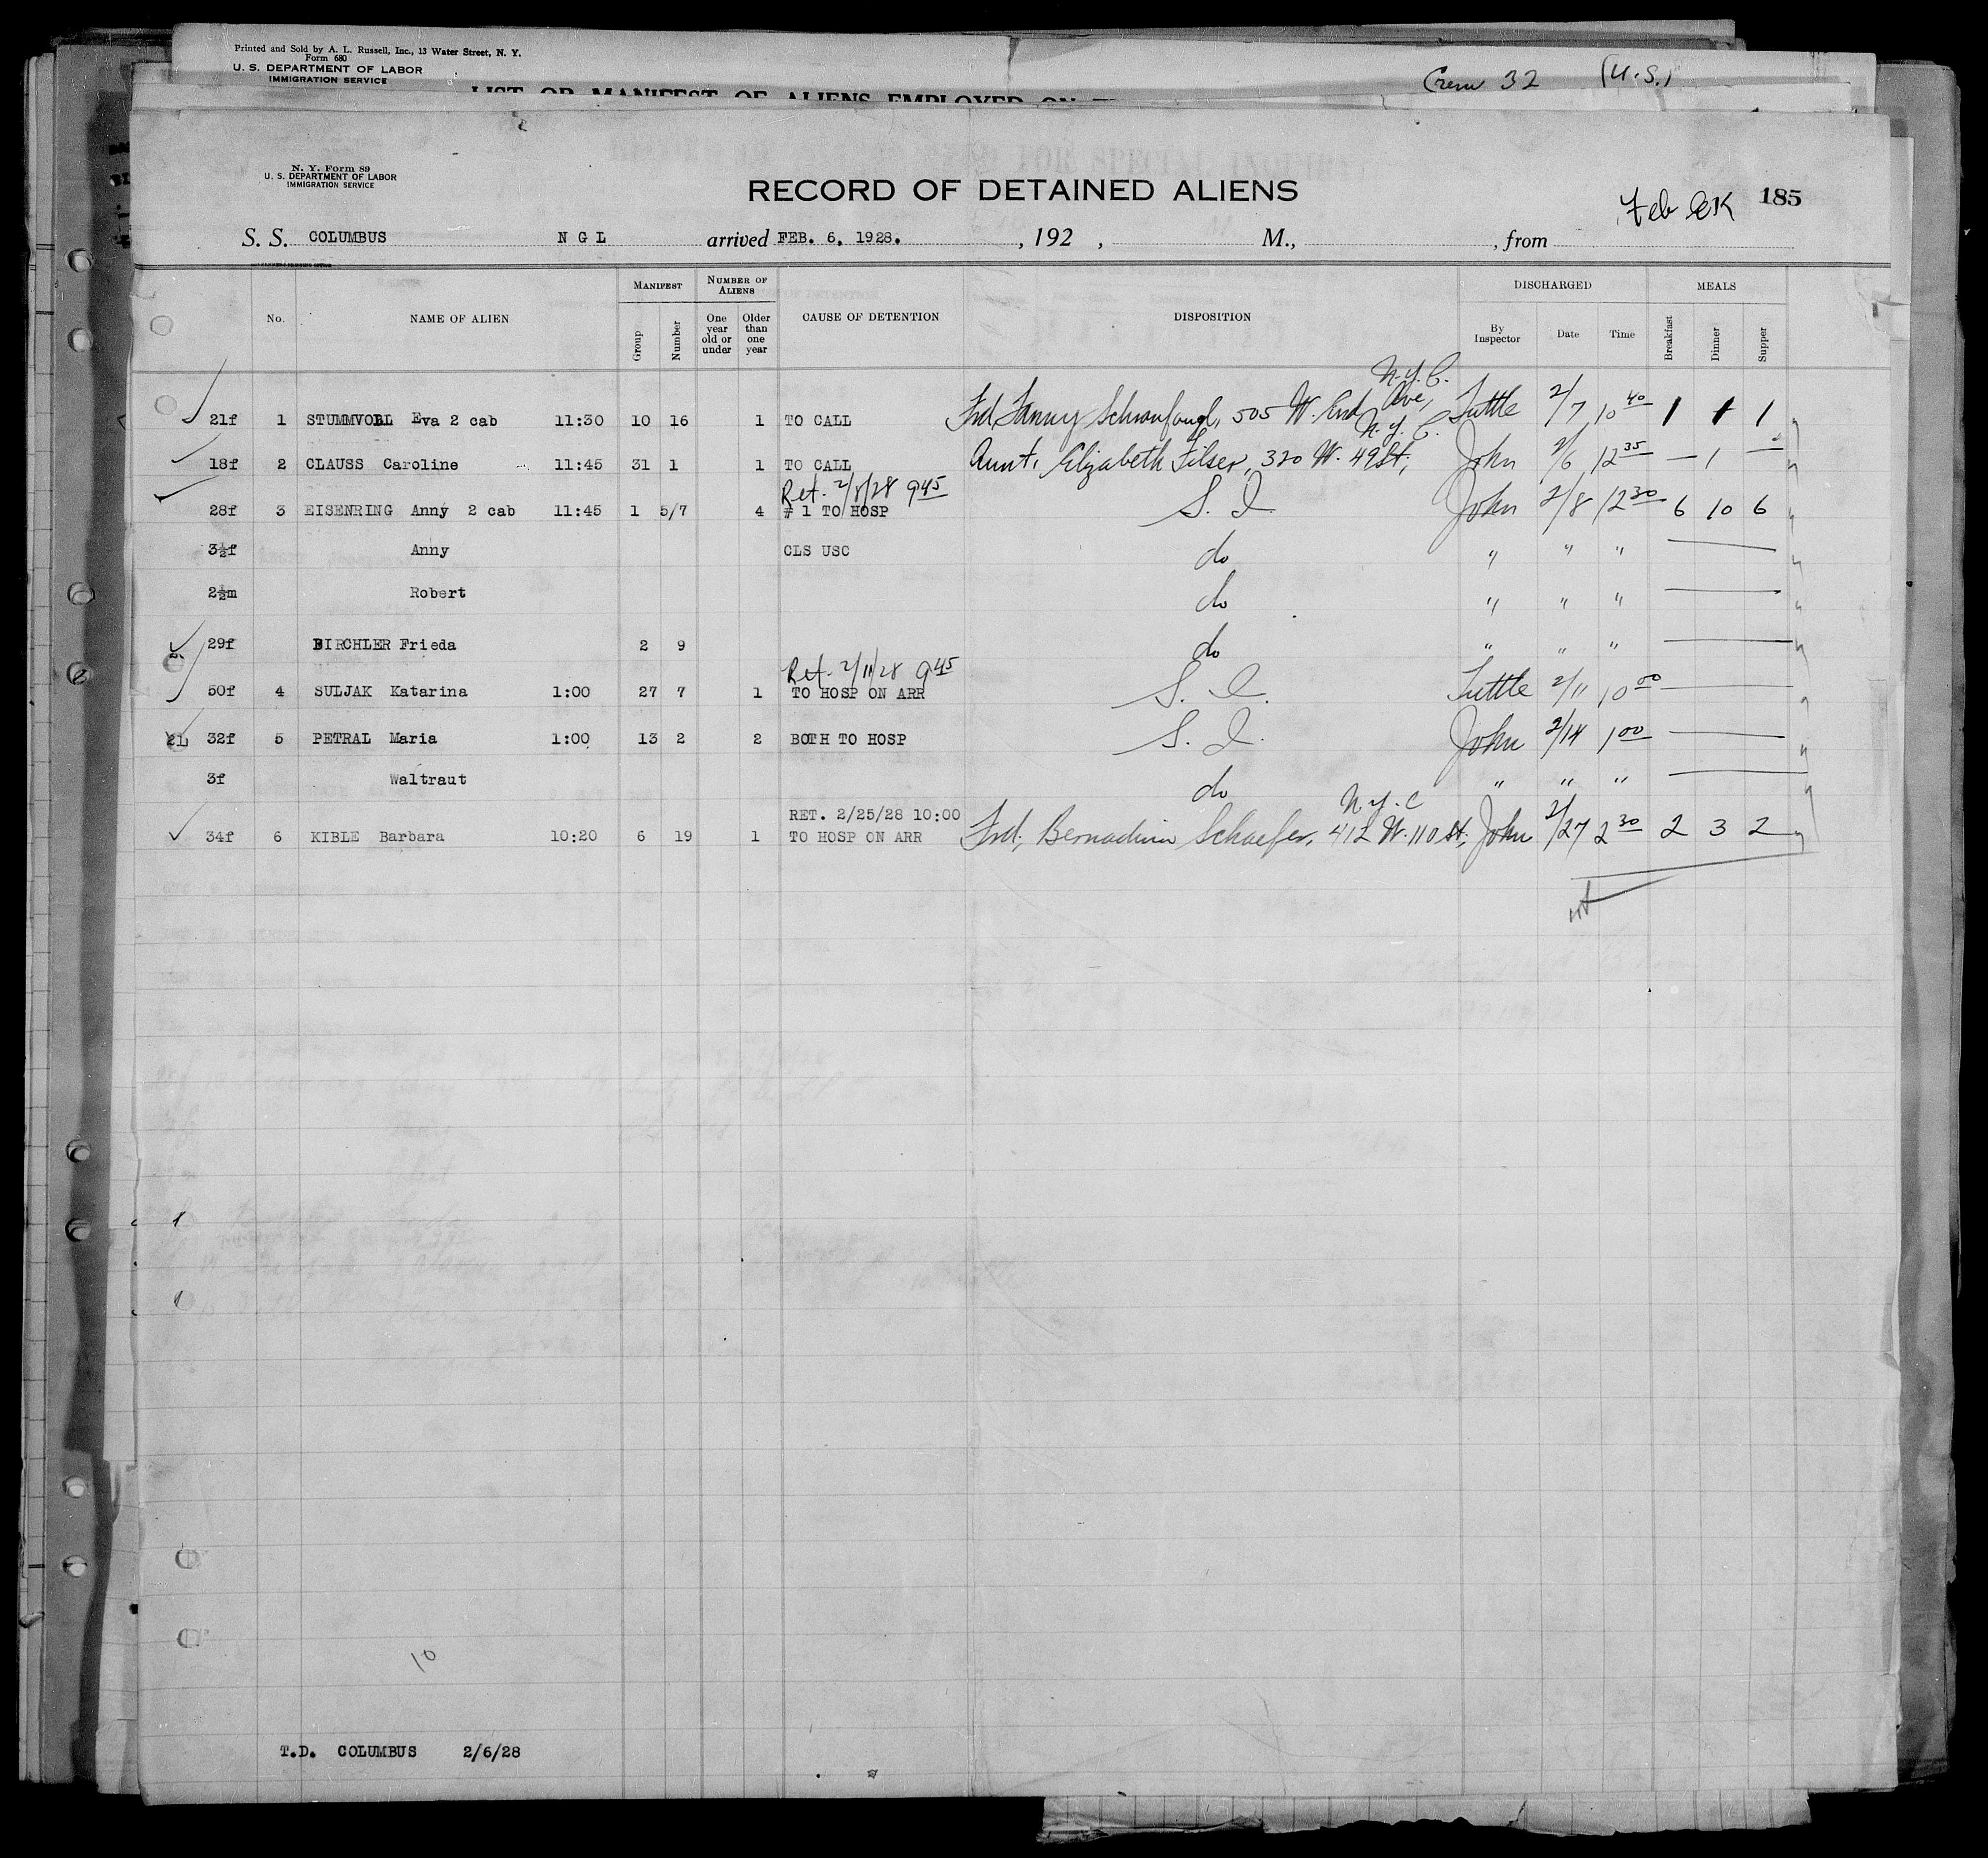 Printed and Sold by A. L. Russell, Inc., 13 Water Street, N. Y.
Form 680
U. S. DEPARTMENT OF LABOR
IMMIGRATION SERVICE
LIST OR MANIFEST OF ALIENS EMPLOYED ON
Crew 32 (U.S.)
N. Y. Form 89
U. S. DEPARTMENT OF LABOR
IMMIGRATION SERVICE
RECORD OF DETAINED ALIENS
Feb 185
S. S. COLUMBUS N G L arrived FEB. 6, 1928. , 192 , M., , from
No. NAME OF ALIEN MANIFEST Group Number NUMBER OF ALIENS One year old or under Older than one year CAUSE OF DETENTION DISPOSITION DISCHARGED By Inspector Date Time MEALS Breakfast Dinner Supper
N.Y.C.
21f 1 STUMMVOLL Eva 2 cab 11:30 10 16 1 TO CALL Frd Fanny 505 W. End Ave, Tuttle 2/7 10 40 1 1 1
N.Y.C.
18f 2 CLAUSS Caroline 11:45 31 1 1 TO CALL Aunt, Elizabeth Filser, 320 W. 49 St, John 2/6 12 35 — 1 —
Ret. 2/8/28 9 45
28f 3 EISENRING Anny 2 cab 11:45 1 5/7 4 # 1 TO HOSP S. I. John 2/8 12 30 6 10 6
3½f Anny CLS USC do " " "
2½m Robert do " " "
29f BIRCHLER Frieda 2 9 do " " "
Ret. 2/11/28 9 45
50f 4 SULJAK Katarina 1:00 27 7 1 TO HOSP ON ARR S. I. Tuttle 2/11 10 00
21 32f 5 PETRAL Maria 1:00 13 2 2 BOTH TO HOSP S. I. John 2/14 1 00
3f Waltraut do " " "
RET. 2/25/28 10:00 N.Y.C
34f 6 KIBLE Barbara 10:20 6 19 1 TO HOSP ON ARR Frd, Schaefer, 412 W. 110 St, John 2/27 2 30 2 3 2
10
T.D. COLUMBUS 2/6/28